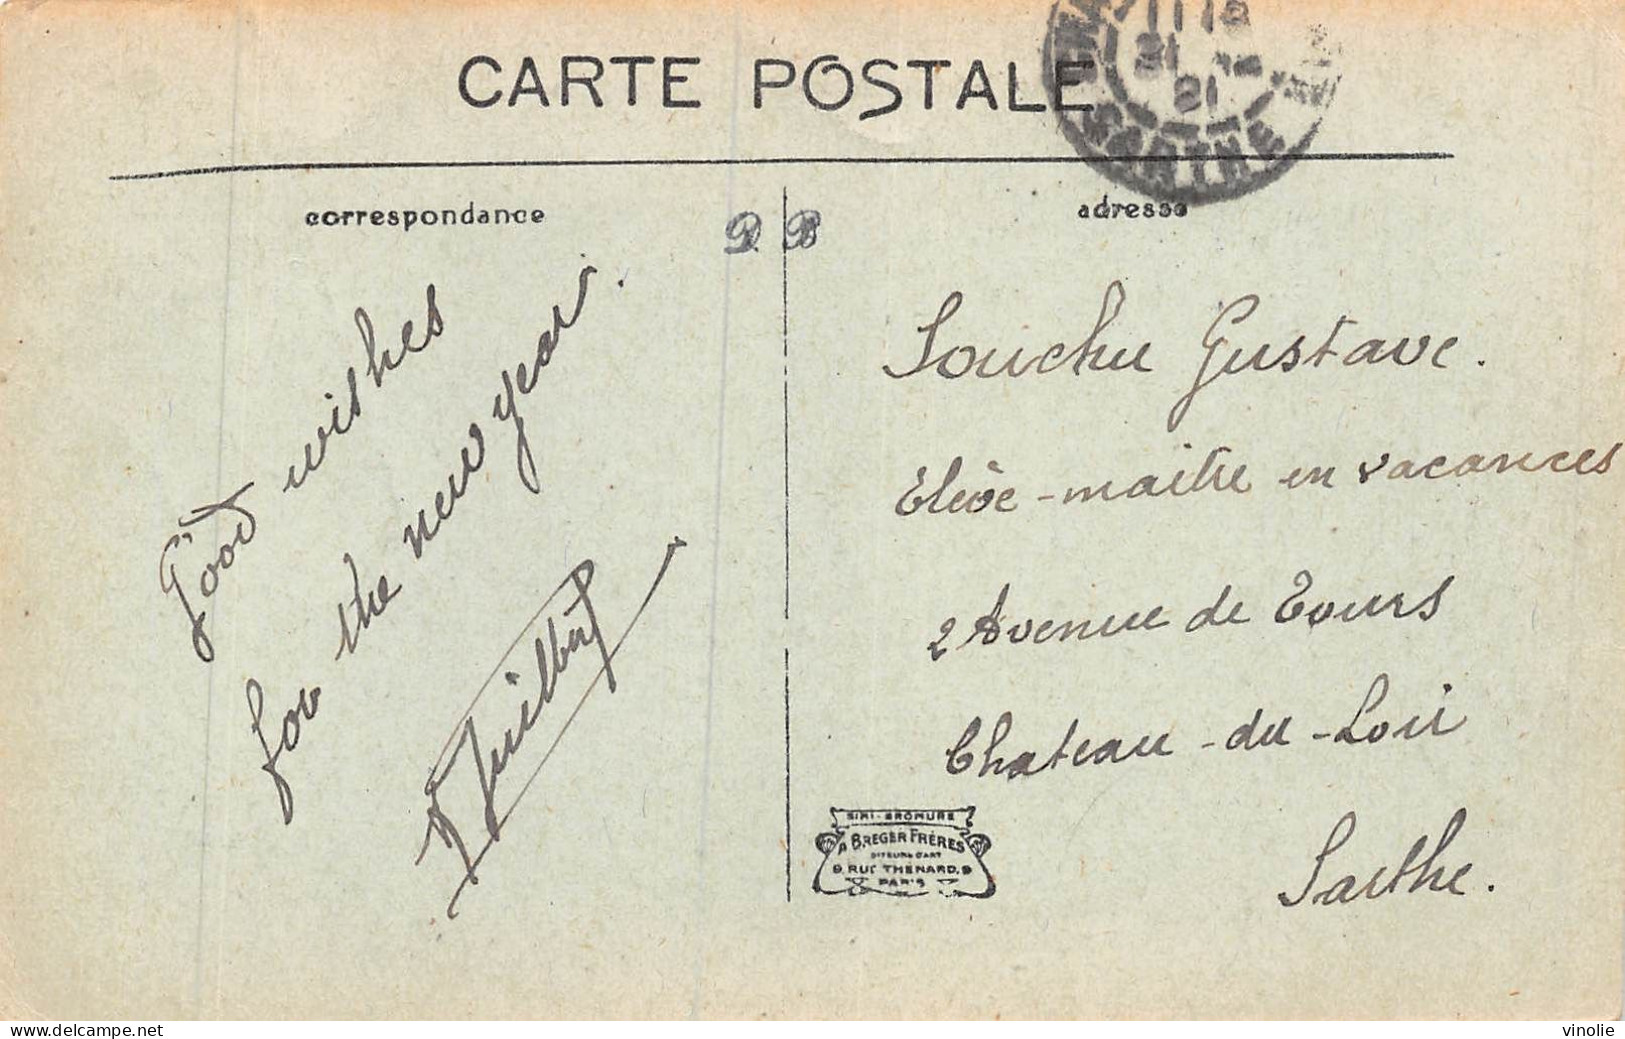 CARTE POSTALE
SARTHE
correspondance
adresse
Good wishes
for the new year.
Guilbert
Souchu Gustave.
Elève-maître en vacances
2 Avenue de Tours
Chateau-du-Loir
Sarthe.
SIMI-BROMURE
A. BREGER FRÈRES
9, RUE THÉNARD, 9
PARIS
www.delcampe.net
vinolie